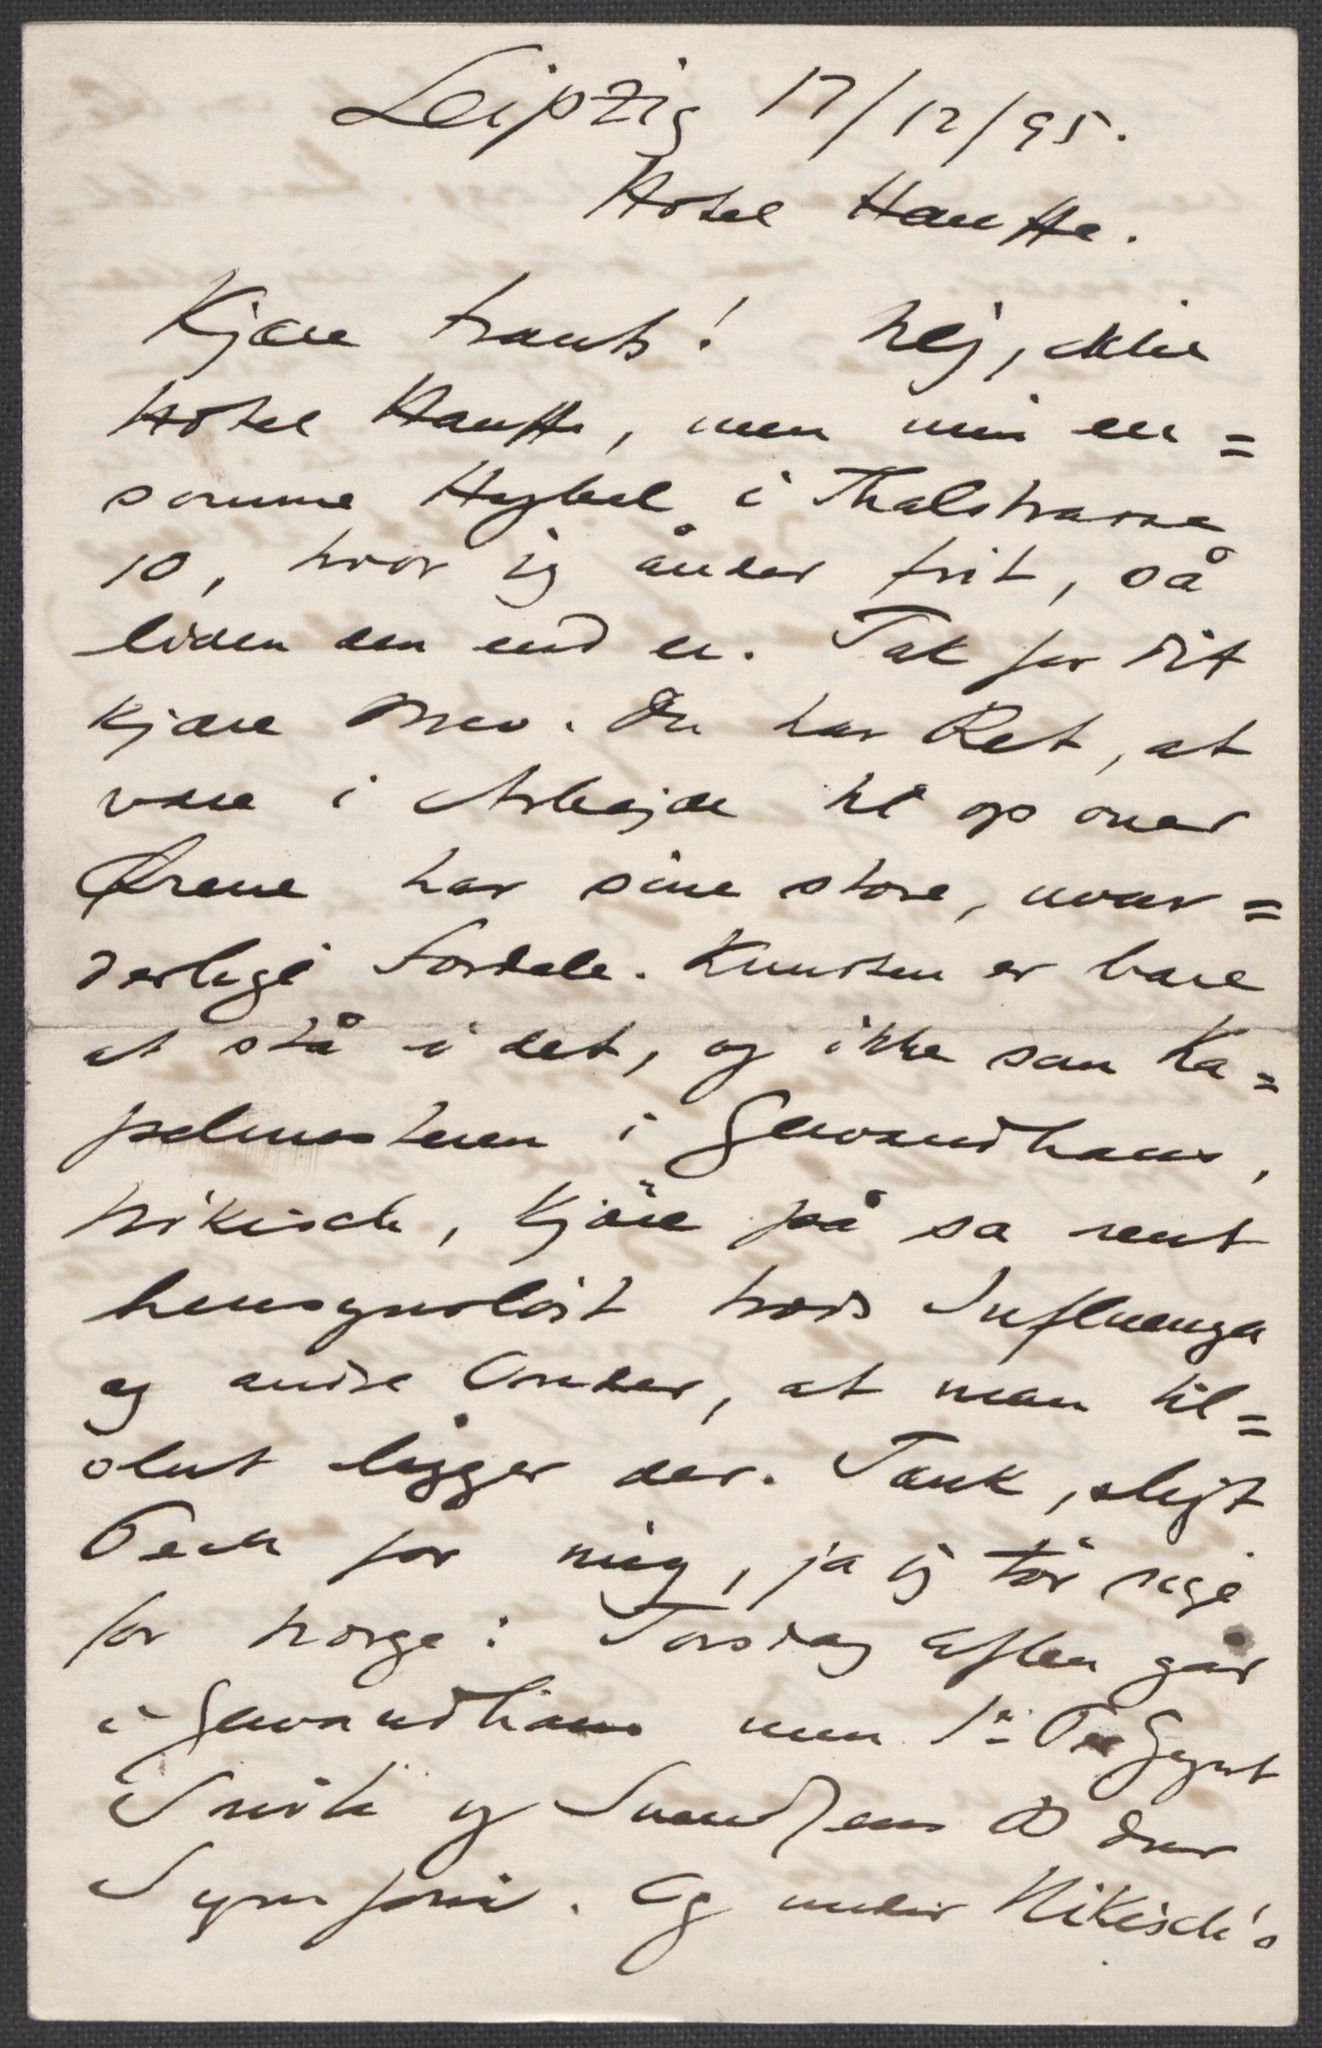 Leipzig 17/12/95.
Hotel Hauffe.
Kjære Frants! Nej, ikke
Hotel Hauffe, men min en=
somme Hybel i Thalstrasse
10, hvor jeg ånder frit, så
liden den end er. Tak for dit
kjære Brev. Du har Ret, at
være i Arbejde til op over
Ørene har sine store, uvur=
derlige Fordele. Kunsten er bare
at stå i det, og ikke som Ka=
pelmesteren i Gewandhaus,
Nikisch, kjöre på så rent
hensynslöst trods Influenza
og andre Onder, at man til=
slut ligger der. Tænk, sligt
Pech for mig, ja jeg tör sige
for Norge: Torsdag Aften går
i Gewandhaus min 1ste Peer Gynt
Suite og Svendsens D dur
Symfoni. Og under Nikisch's